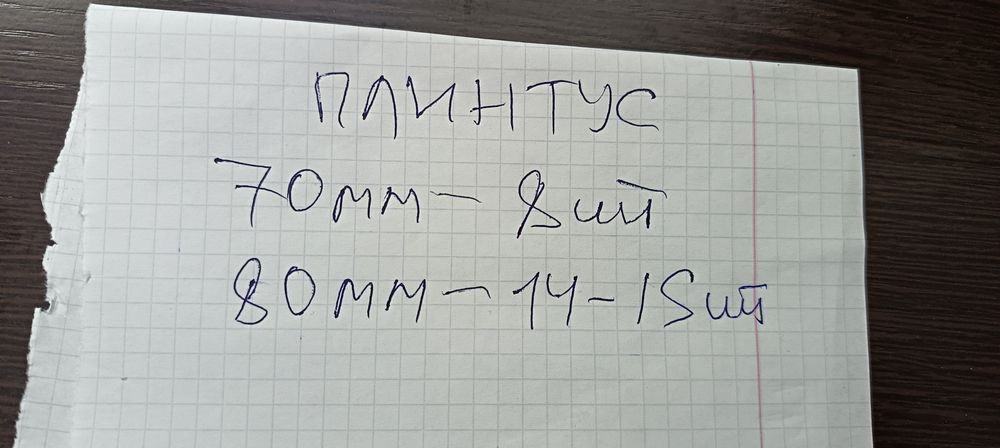 ПЛИНТУС
70мм - 8шт
80мм - 14-15шт